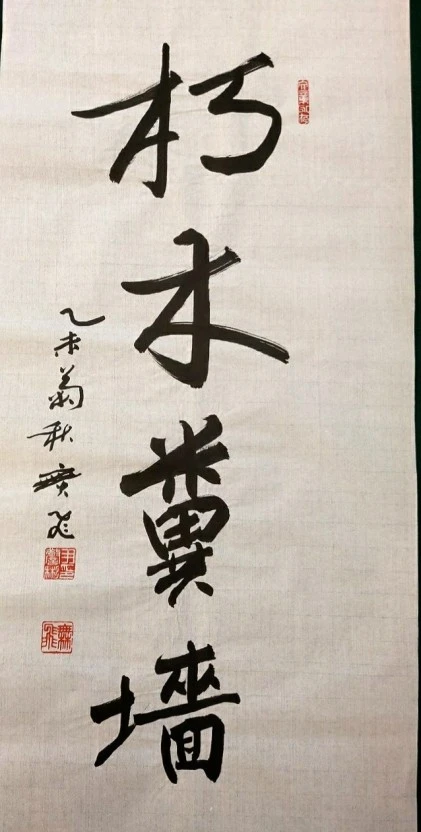 朽木糞墻
乙未菊秋